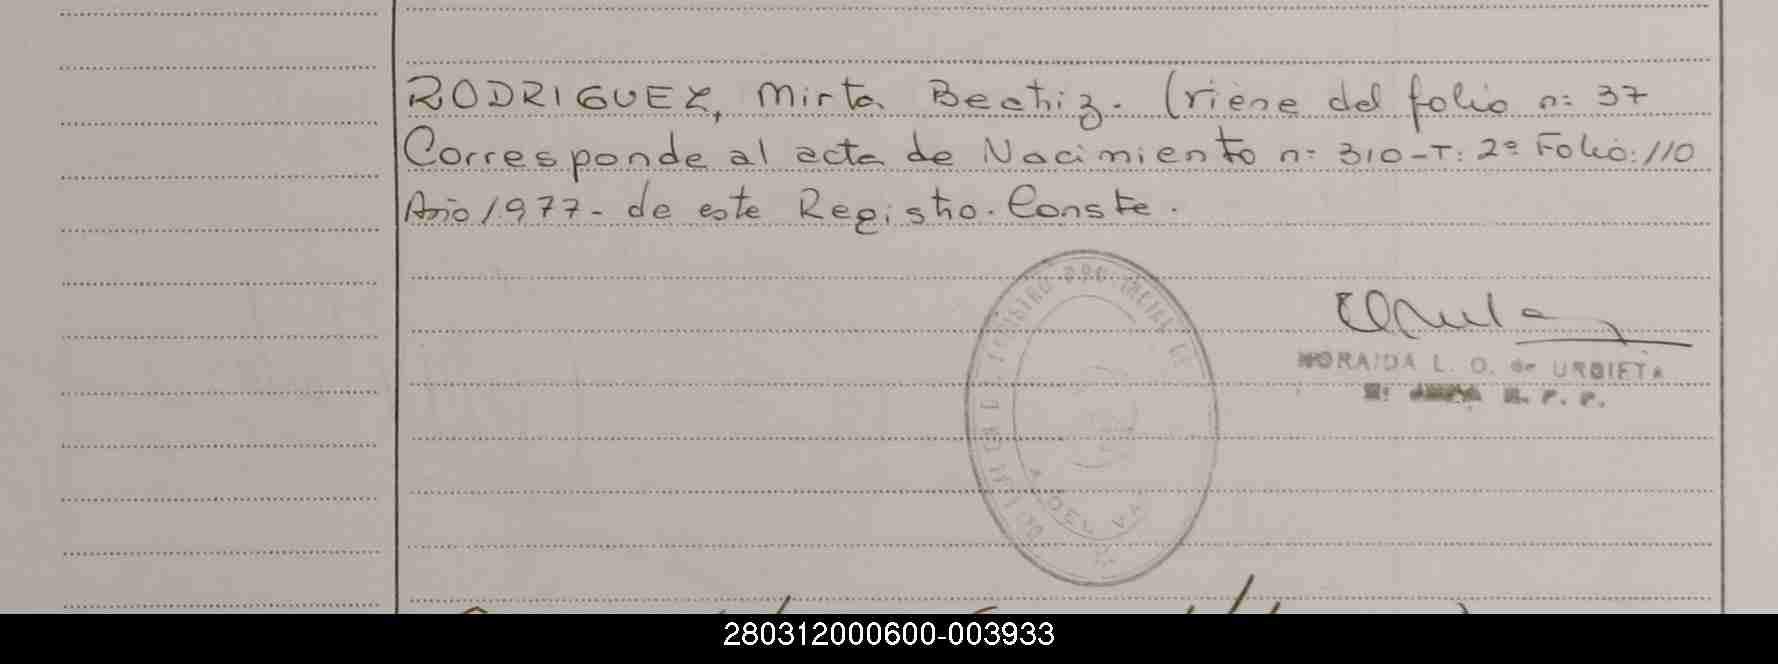 RODRIGUEZ, Mirta Beatriz. (viene del folio n: 37
Corresponde al acta de Nacimiento n: 310-T: 2º Folio: 110
Año 1977- de este Registro. Conste.
NORAIDA L. O. de URBIETA
R. P. P.
280312000600-003933